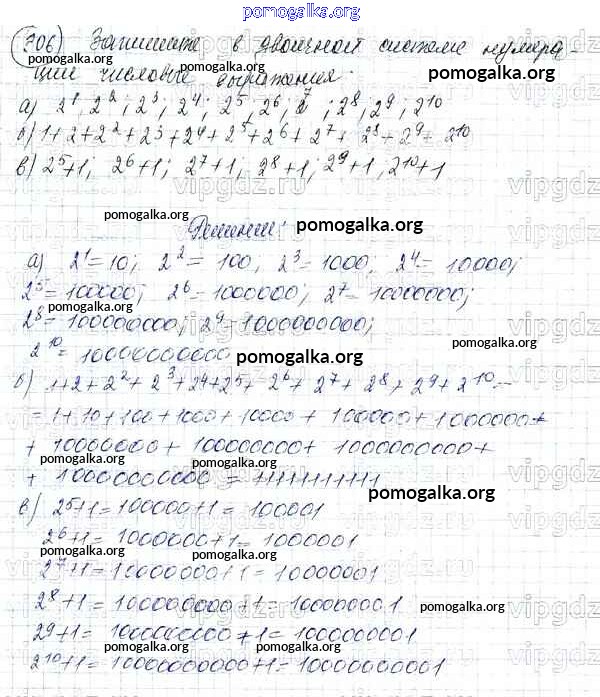 pomogalka.org
706) Запишите в двоичной системе нумера
ции числовые выражения:
pomogalka.org
а) 2¹, 2²; 2³; 2⁴; 2⁵, 2⁶, 2⁷; 2⁸, 2⁹, 2¹⁰
б) 1+2+2²+23+24+2⁵+2⁶+2⁷+2⁸+2⁹+2¹⁰
в) 2⁵+1; 2⁶+1; 2⁷+1; 2⁸+1; 2⁹+1, 2¹⁰+1
vipgdz.ru
pomogalka.org
Решение:
pomogalka.org
а) 2¹=10; 2²=100, 2³=1000, 2⁴=10000;
2⁵=100000; 2⁶=1000000; 2⁷=10000000;
pomogalka.org
2⁸=100000000; 2⁹=1000000000;
2¹⁰=10000000000
pomogalka.org
б) 1+2+2²+2³+24+2⁵+2⁶+2⁷+2⁸+2⁹+2¹⁰=
pomogalka.org
=1+10+100+1000+10000+100000+1000000+
+10000000+100000000+1000000000+
pomogalka.org pomogalka.org
+10000000000=11111111111
pomogalka.org
в) 2⁵+1=100000+1=100001
pomogalka.org
2⁶+1=1000000+1=1000001
pomogalka.org
2⁷+1=10000000+1=10000001
2⁸+1=100000000+1=100000001
pomogalka.org
29+1=1000000000+1=1000000001
pomogalka.org
2¹⁰+1=10000000000+1=10000000001